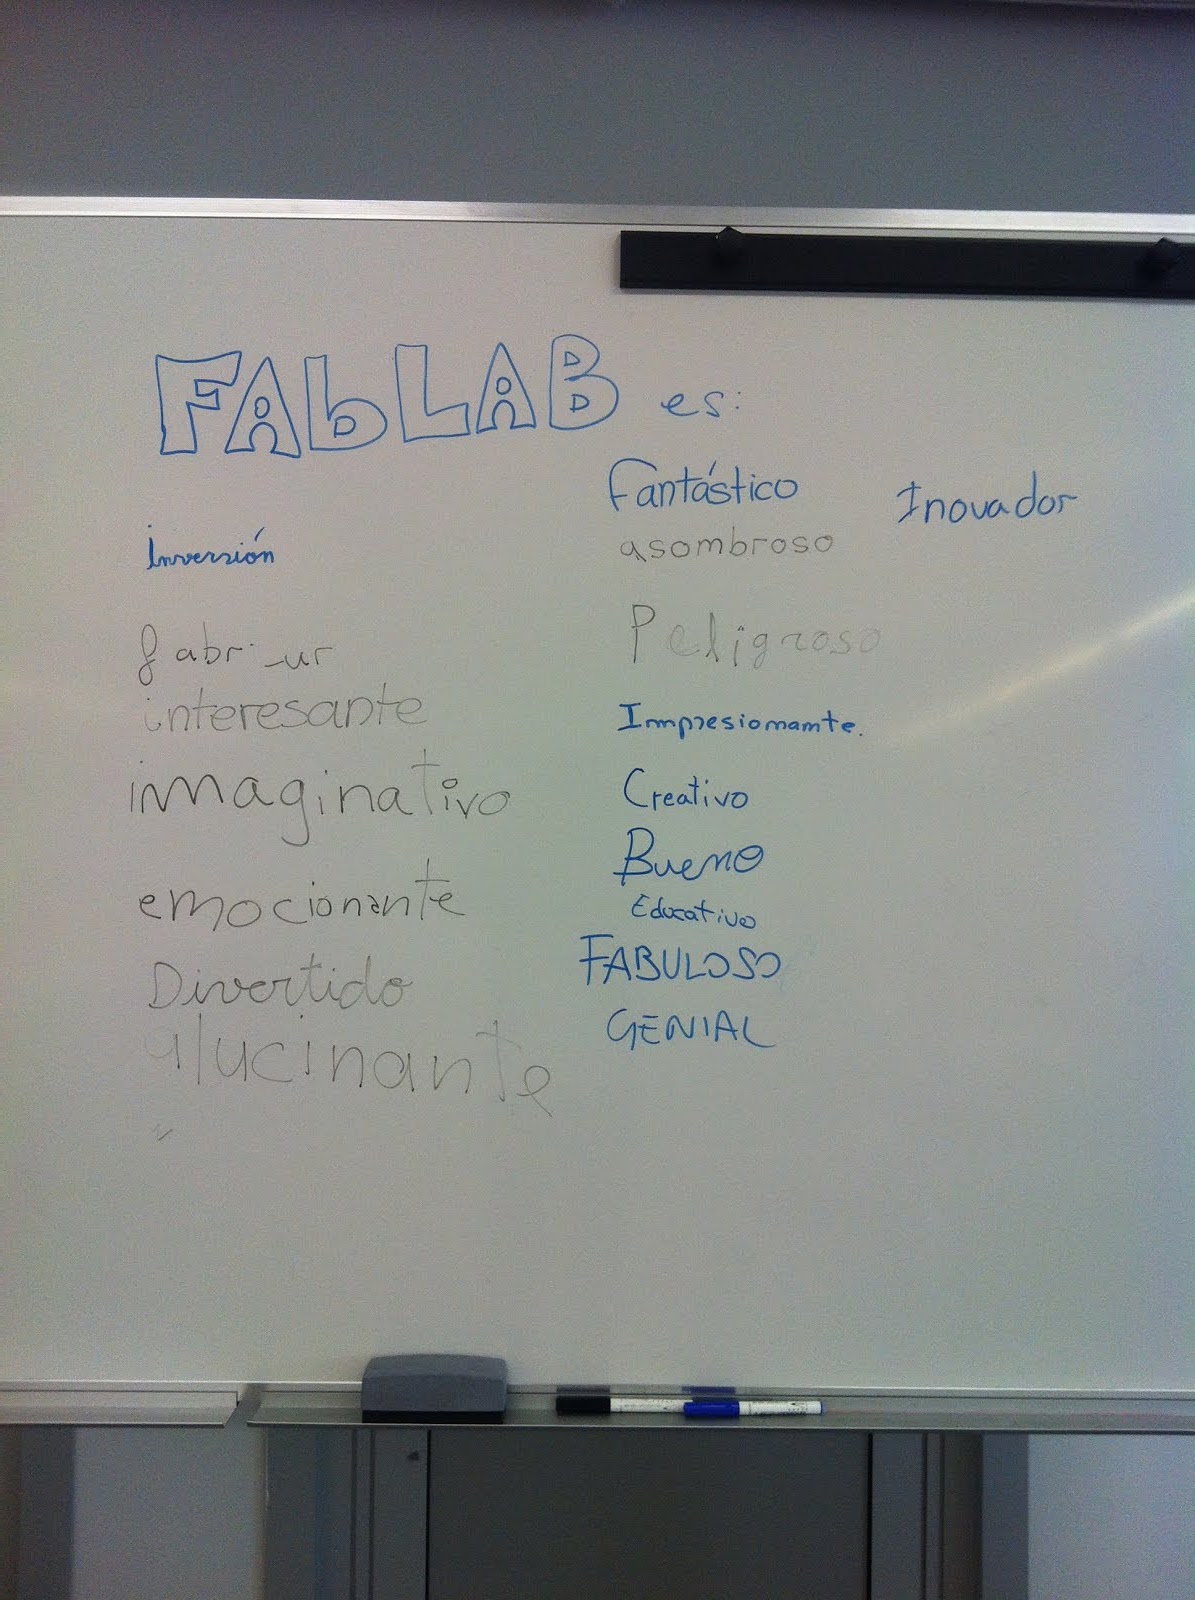 FAbLAB es:
Inversión
interesante
imaginativo
emocionante
Divertido
alucinante
Fantástico
asombroso
Peligroso
Impresiomamte.
Creativo
Bueno
Educativo
FABULOSO
GENIAL
Inovador